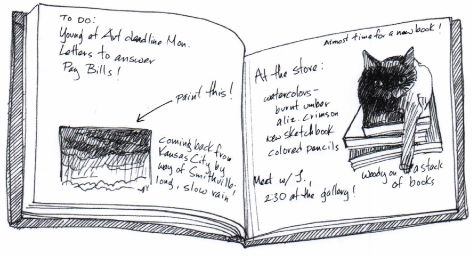 TO DO:
Young at Art deadline Mon.
Letters to answer
Pay Bills!
paint this!
coming back from
Kansas City by
way of Smithville-
long, slow rain
Almost time for a new book!
At the store:
watercolors-
burnt umber
aliz. crimson
new sketchbook
colored pencils
Meet w/ J.,
230 at the gallery!
woody on a stack
of books